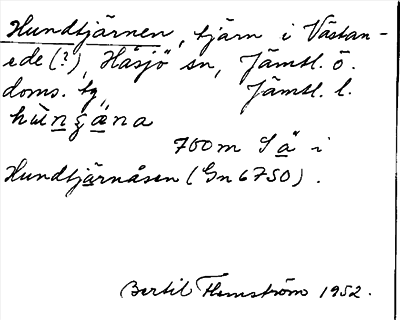 Hundtjärnen, tjärn i Västan-
ede (?), Håsjö sn, Jämtl. ö.
doms. tg, Jämtl. l.
700 m S ä i
Hundtjärnåsen (Gn 6750).
Bertil Flemström 1952.